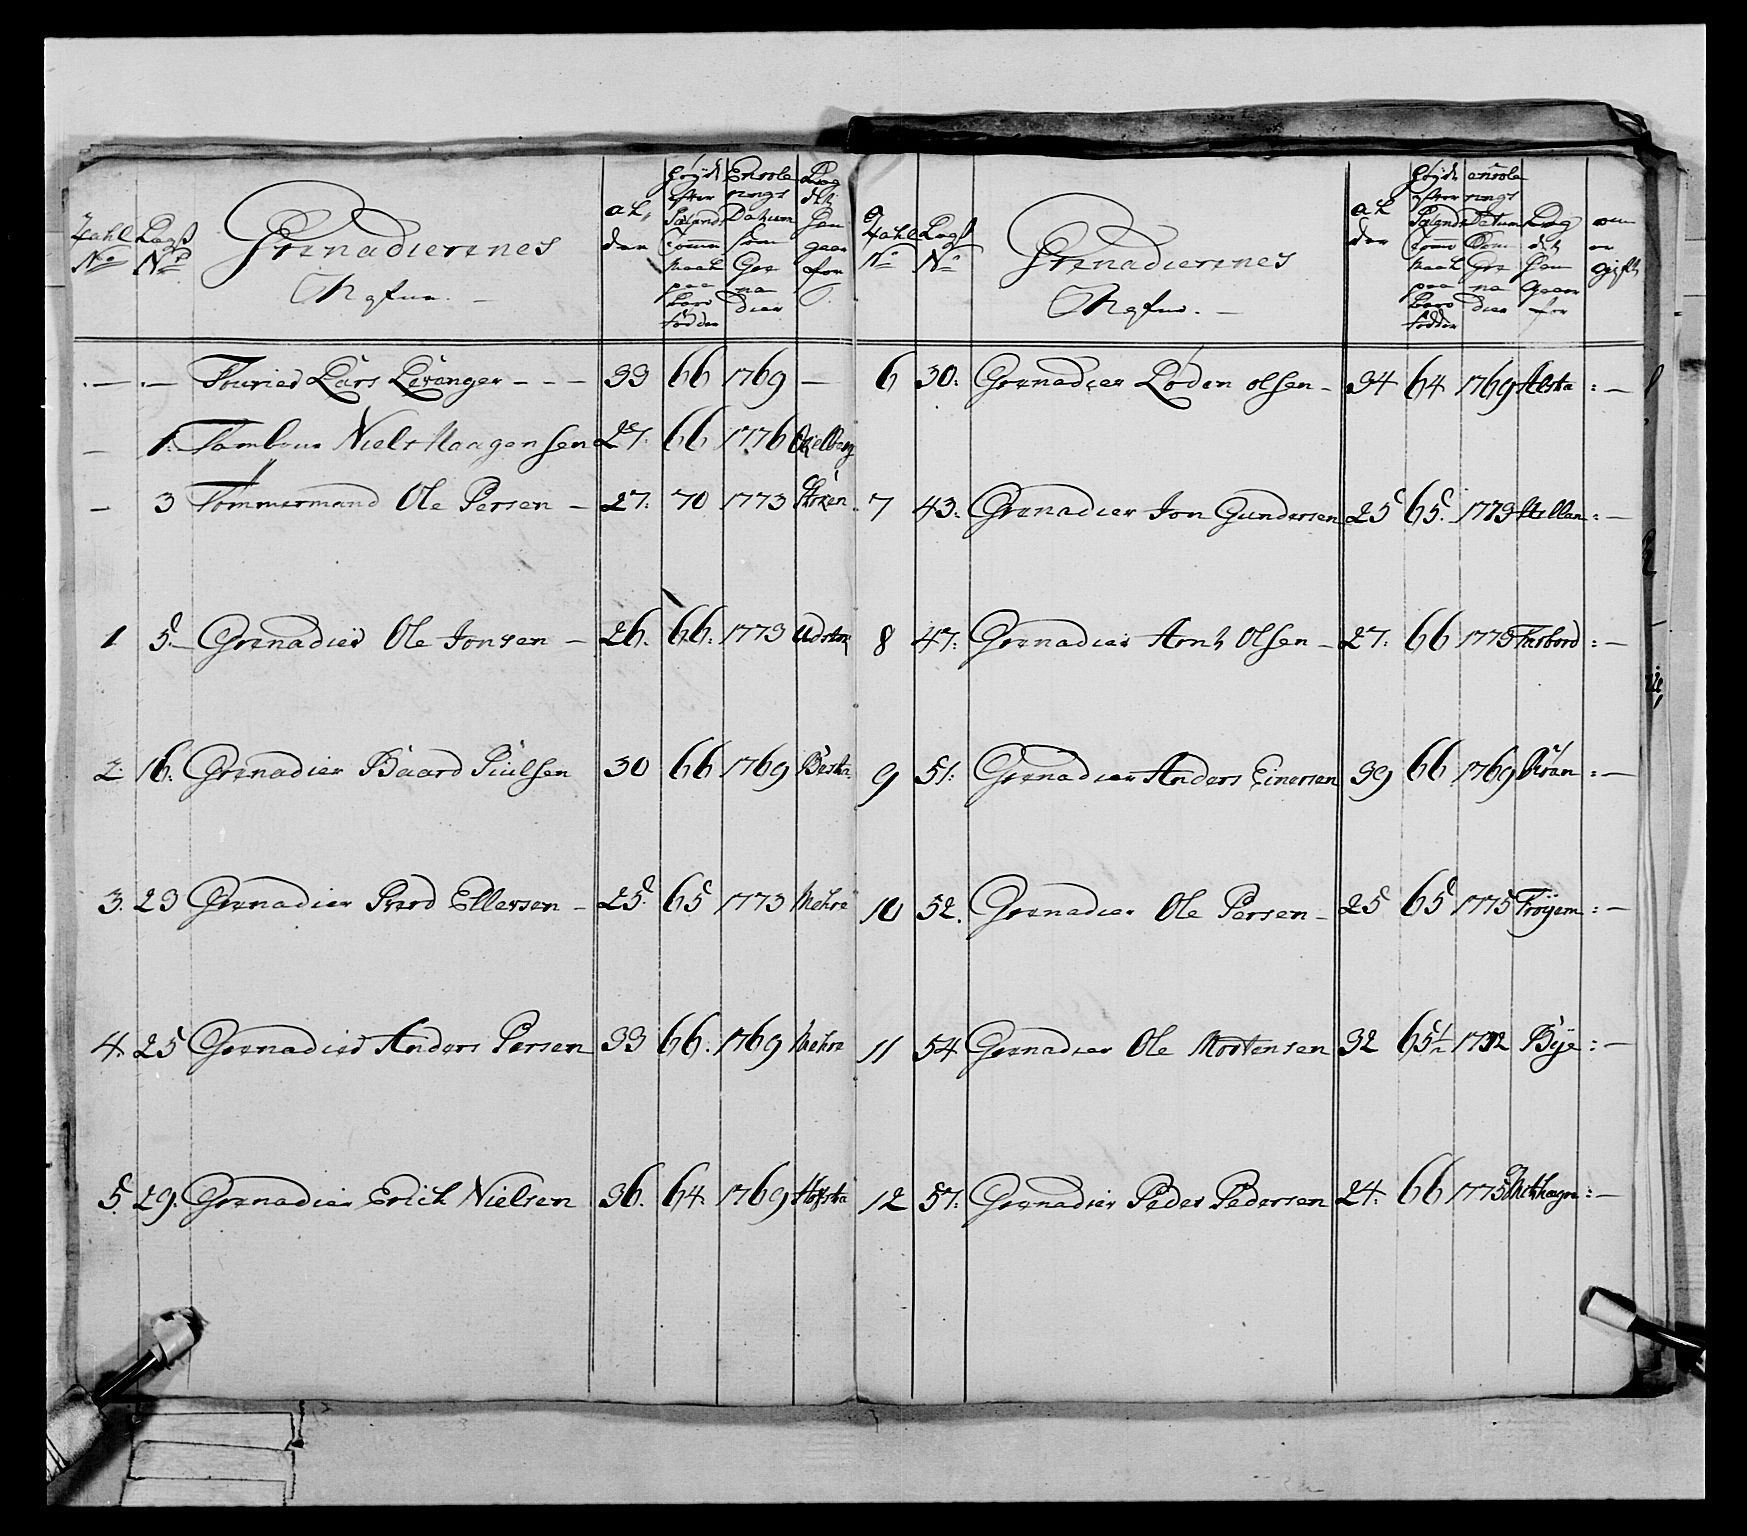 Tahl No
Lægs No
Grenadierenes
Nafne. –
al, der
Høyde efter Siælands Tomme Maal paa Bare Fødder
Enrole rings Datum som Gre na dier
Læg det Han gaar for
– – Fourier Lars Levanger – – – 33 66 1769 –
– 1. Tambour Niels Haagensen 27. 66 1776
– 3 Tømmermand Ole Persen – 27. 70 1773
1 5. – Grenadier Ole Jonsen – 26. 66. 1773
2. 16. Grenadier Baard Siulsen 30 66 1769
3. 23 Grenadier Sivord Ellevsen – 25. 65 1773 Mehre
4. 25 Grenadier Anders Persen 33 66. 1769 Mehre
5. 29. Grenadier Erich Nielsen 36. 64. 1769
Tahl No
Lægs No
Grenadierenes
Nafne. –
al der
Høyde efter Siælands Tomme Maal paa Bare Fødder
enrole rings Datum Som Gre na dier
Læg det Han gaar for
om er gift
6 30: Grenadier Loden olsen – 34 64 1769 : –
7 43: Grenadier Jon Gundersen 25 65. 1773 : –
8 47: Grenadier Arnt Olsen – 27: 66 1773 : –
9 51: Grenadier Anders Einersen 39 66 1769 : –
10 52. Grenadier Ole Persen – 25 65 1775 Frøyem : –
11 54 Grenadier Ole Mortensen 32 65½ 1772 Bye : –
12 57: Grenadier Peder Pedersen 24. 66 1775 : –